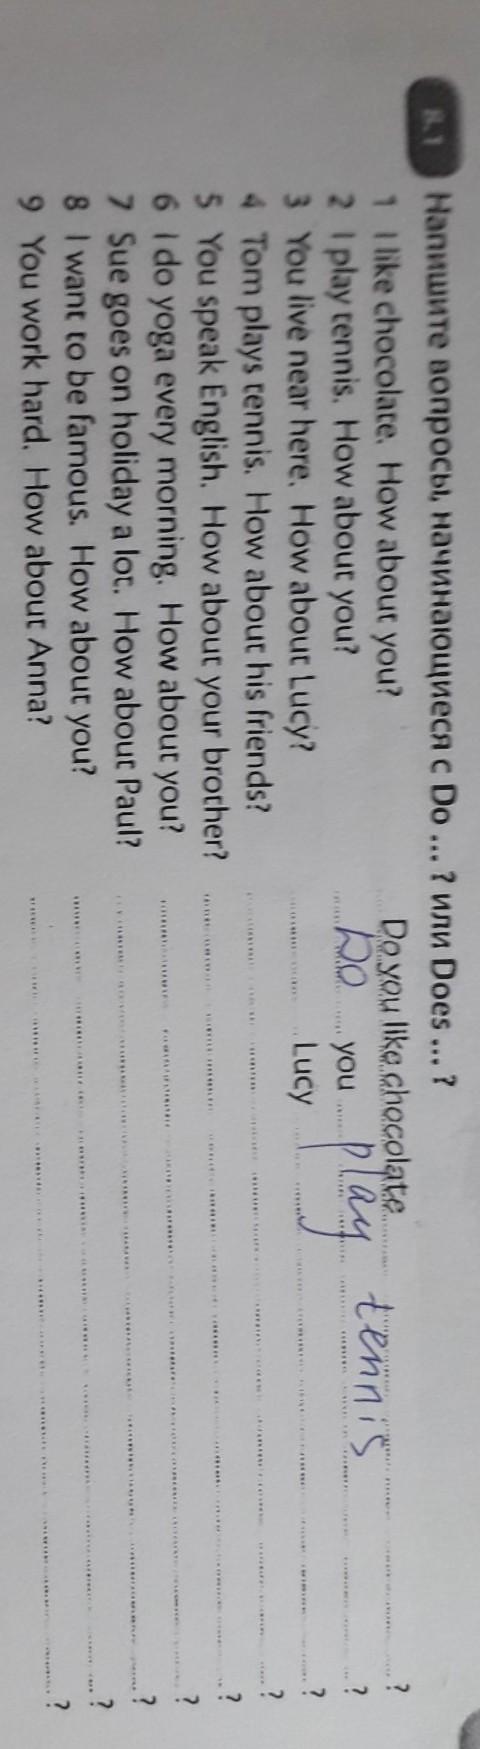 8.1 Напишите вопросы, начинающиеся с Do ... ? или Does ... ?
1 I like chocolate. How about you? Do you like chocolate ?
2 I play tennis. How about you? Do you play tennis ?
3 You live near here. How about Lucy? Lucy ?
4 Tom plays tennis. How about his friends? ?
5 You speak English. How about your brother? ?
6 I do yoga every morning. How about you? ?
7 Sue goes on holiday a lot. How about Paul? ?
8 I want to be famous. How about you? ?
9 You work hard. How about Anna? ?